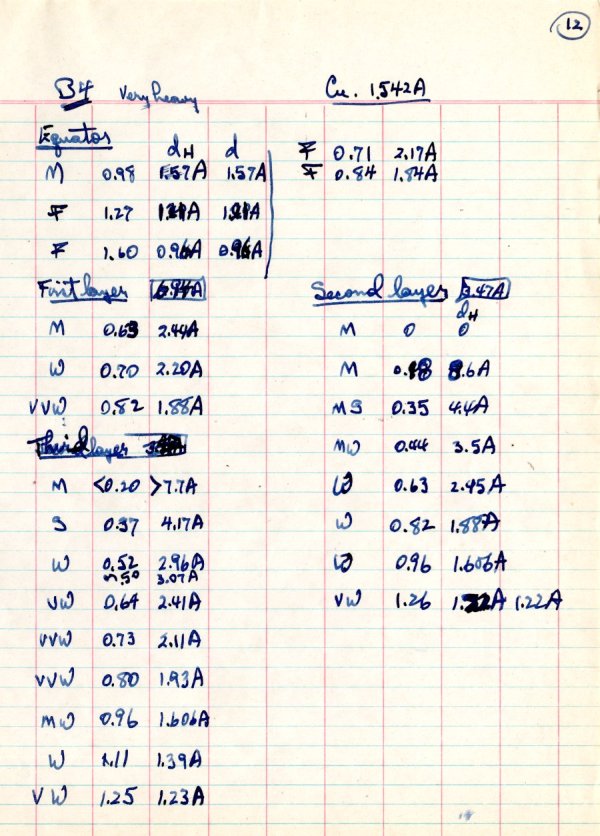 12
B4 Very heavy Cu. 1.542A
Equator
dH d
M 0.98 1.57A 1.57A
F 1.27 A A
F 1.60 0.96A 0.96A
F 0.71 2.17A
F 0.84 1.84A
First layer
M 0.63 2.44A
W 0.70 2.20A
VVW 0.82 1.88A
Third layer
M <0.20 >7.7A
S 0.37 4.17A
W 0.52 2.96A
~.50 3.07A
VW 0.64 2.41A
VVW 0.73 2.11A
VVW 0.80 1.93A
MW 0.96 1.606A
W 1.11 1.39A
VW 1.25 1.23A
Second layer 3.47A
dH
M 0 0
M 0.18 8.6A
MS 0.35 4.4A
MW 0.44 3.5A
W 0.63 2.45A
W 0.82 1.88A
W 0.96 1.606A
VW 1.26 1.22A 1.22A